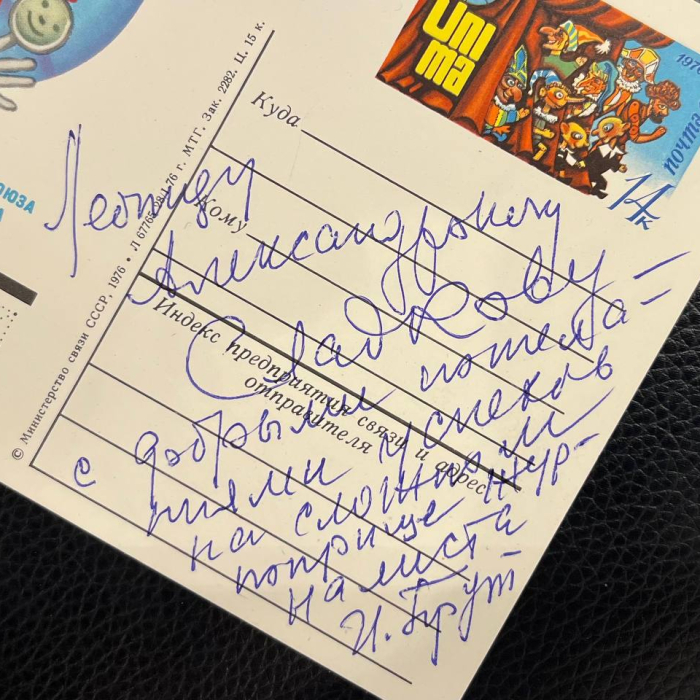 UNIMA
1976
почта
14к
Куда
Кому
Индекс предприятия связи и адрес
отправителя
© Министерство связи СССР, 1976 • Л 67765 08-1-76 г. МТГ. Зак. 2282. Ц. 15 к.
ОЮЗА
Леониду
Александровичу
Сладкову —
с добрыми пожела=
ниями успехов
на сложном
поприще жур-
налиста
И. Брут